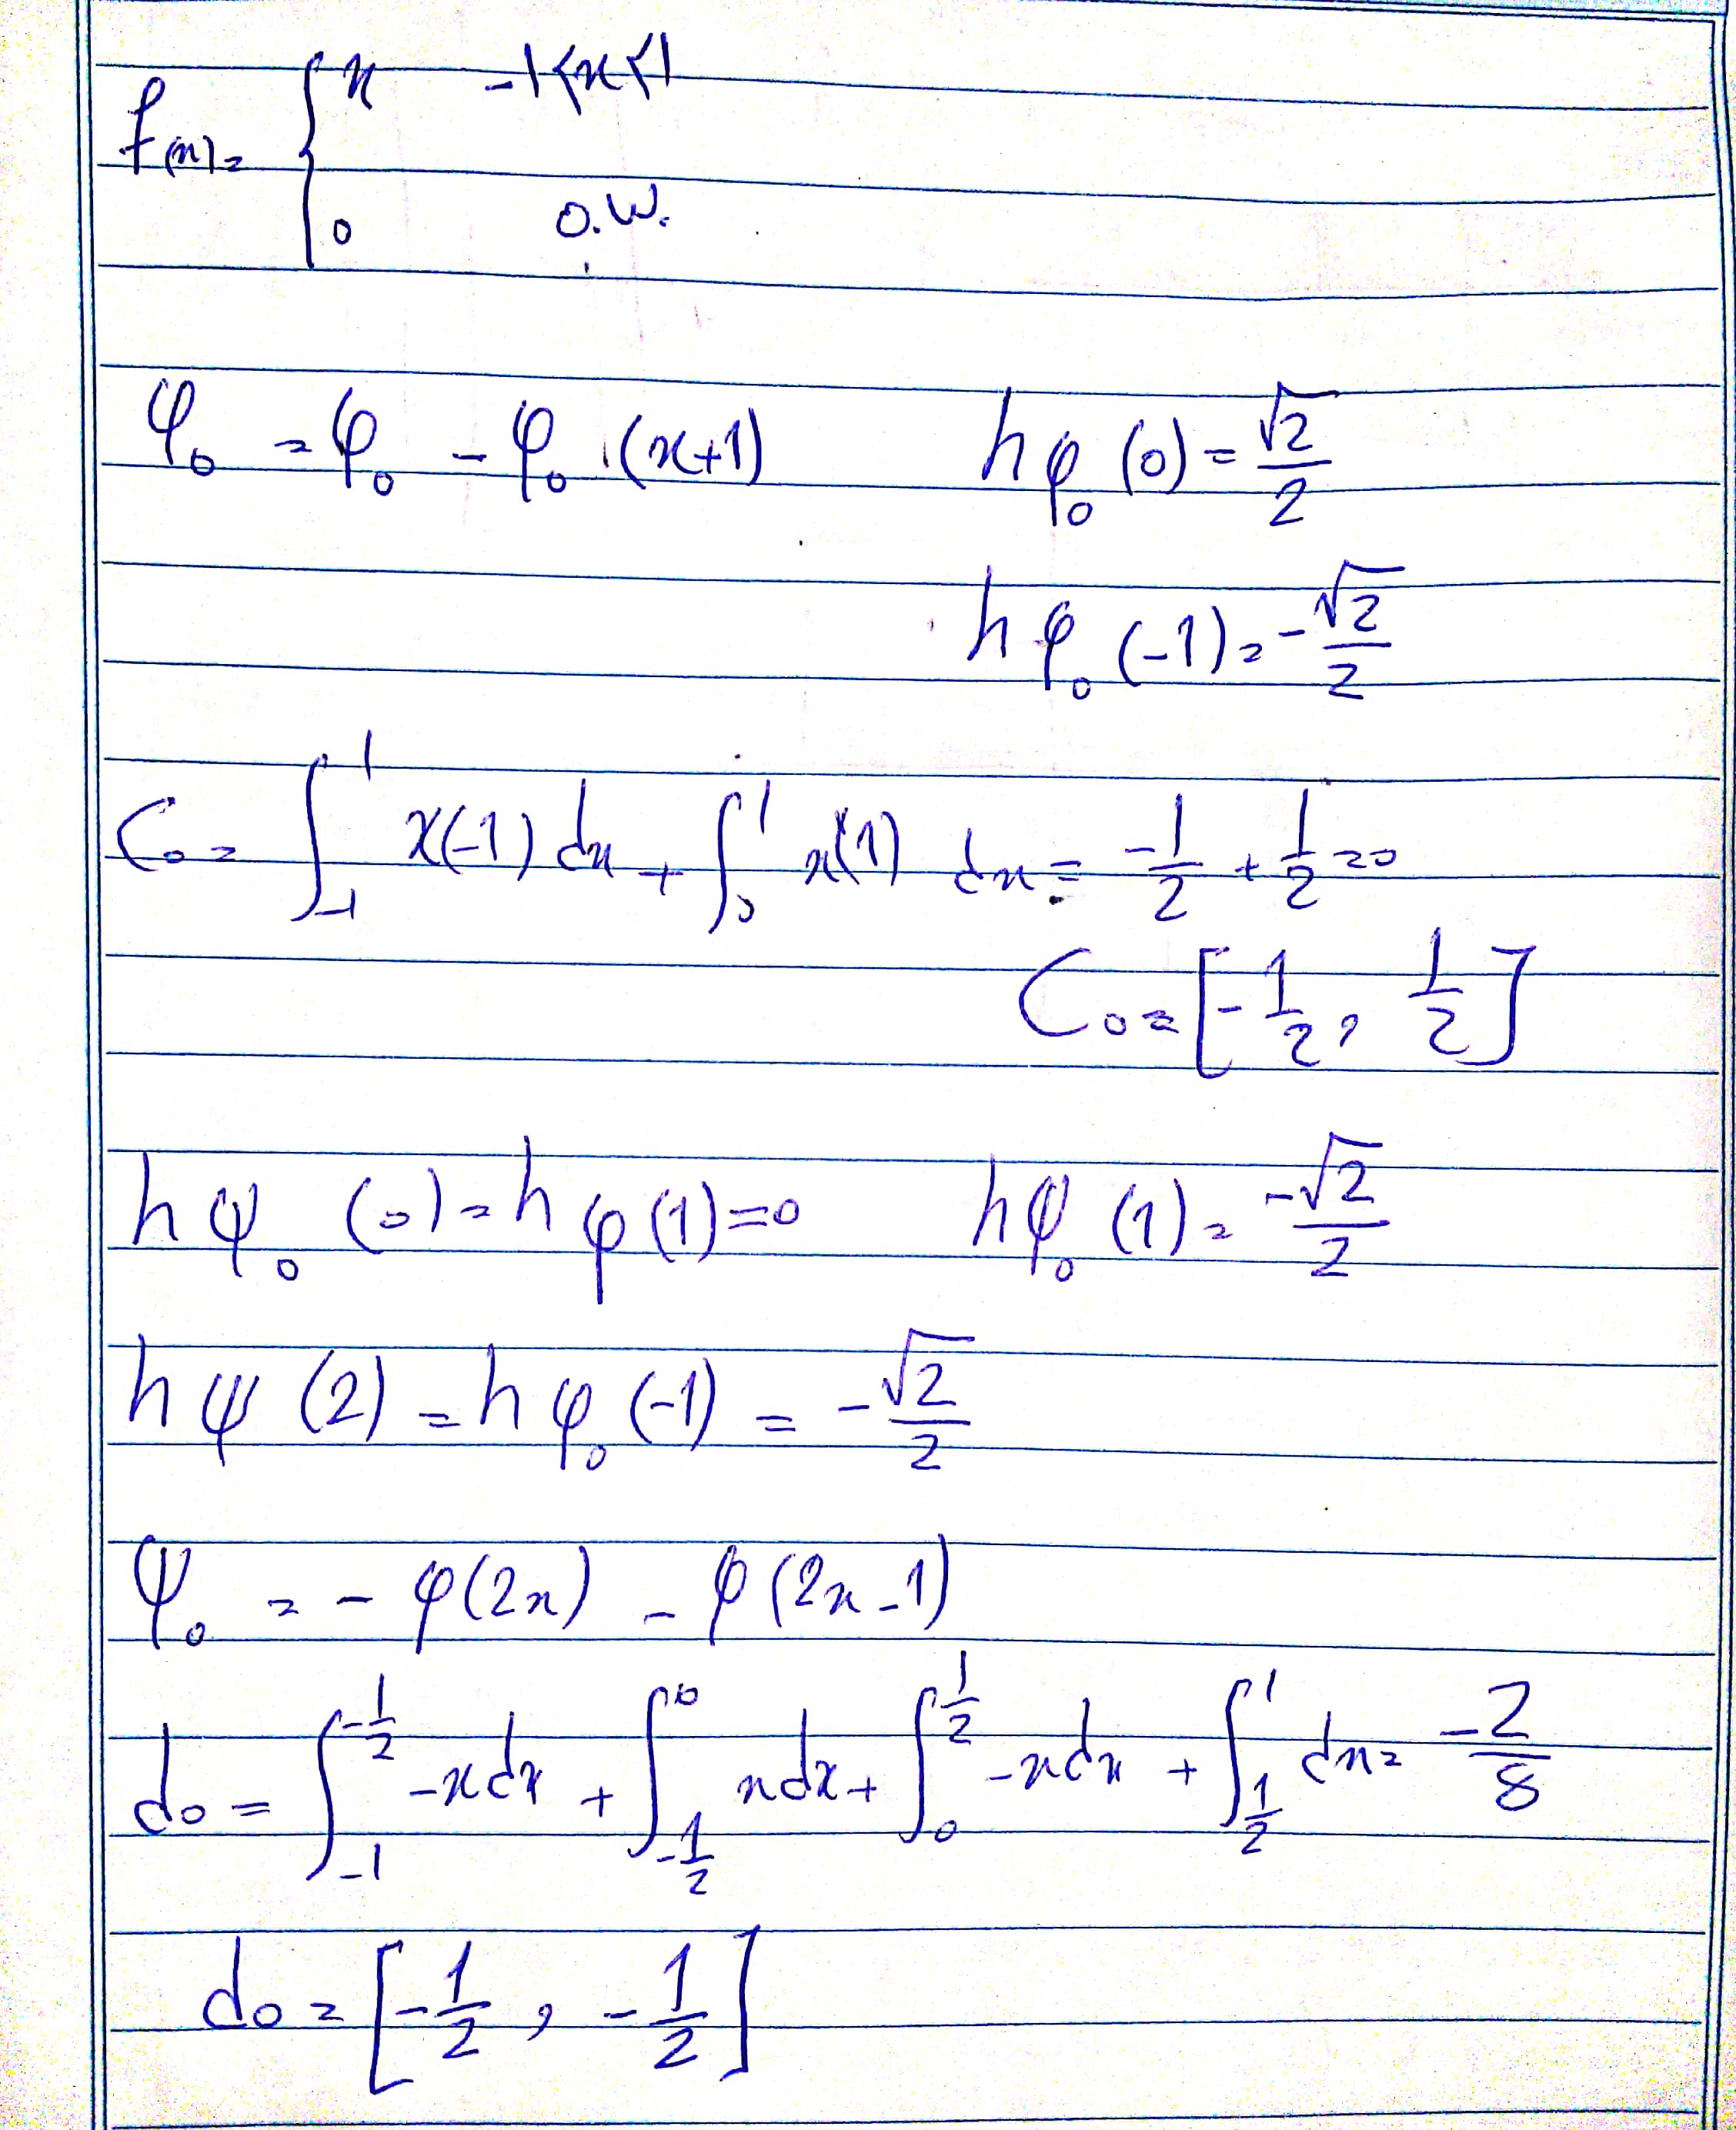 f(x) = { x   -1<x<1
0   O.W.
φ₀ = φ₀ - φ₀ (x+1)   hφ₀ (0) = √2/2
hφ₀ (-1) = -√2/2
C₀ = ∫_{-1}^{1} x(-1) dx + ∫_{0}^{1} x(1) dx = -1/2 + 1/2 = 0
C₀ = [-1/2, 1/2]
hψ₀ (0) = hφ(1) = 0   hψ₀ (1) = -√2/2
hψ (2) = hφ₀ (-1) = -√2/2
ψ₀ = - φ(2x) - φ(2x-1)
d₀ = ∫_{-1}^{-1/2} -x dx + ∫_{-1/2}^{0} x dx + ∫_{0}^{1/2} -x dx + ∫_{1/2}^{1} dx = -2/8
d₀ = [-1/2, -1/2]